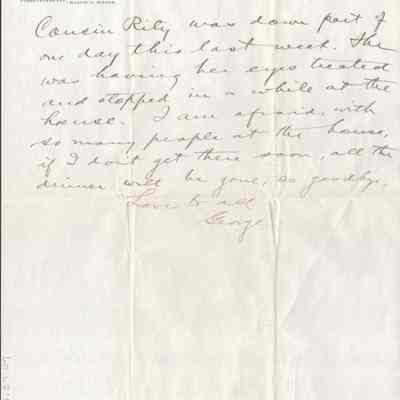 Cousin Rity was down part of
one day this last week. She
was having her eyes treated
and stopped in a while at the
house. I am afraid, with
so many people at the house,
if I don't get there soon, all the
dinner will be gone, so goodbye,
Love to all
George